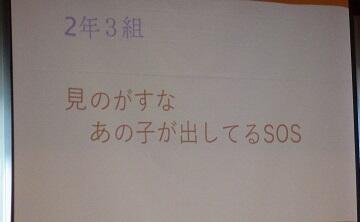 2年3組
見のがすな
あの子が出してるSOS